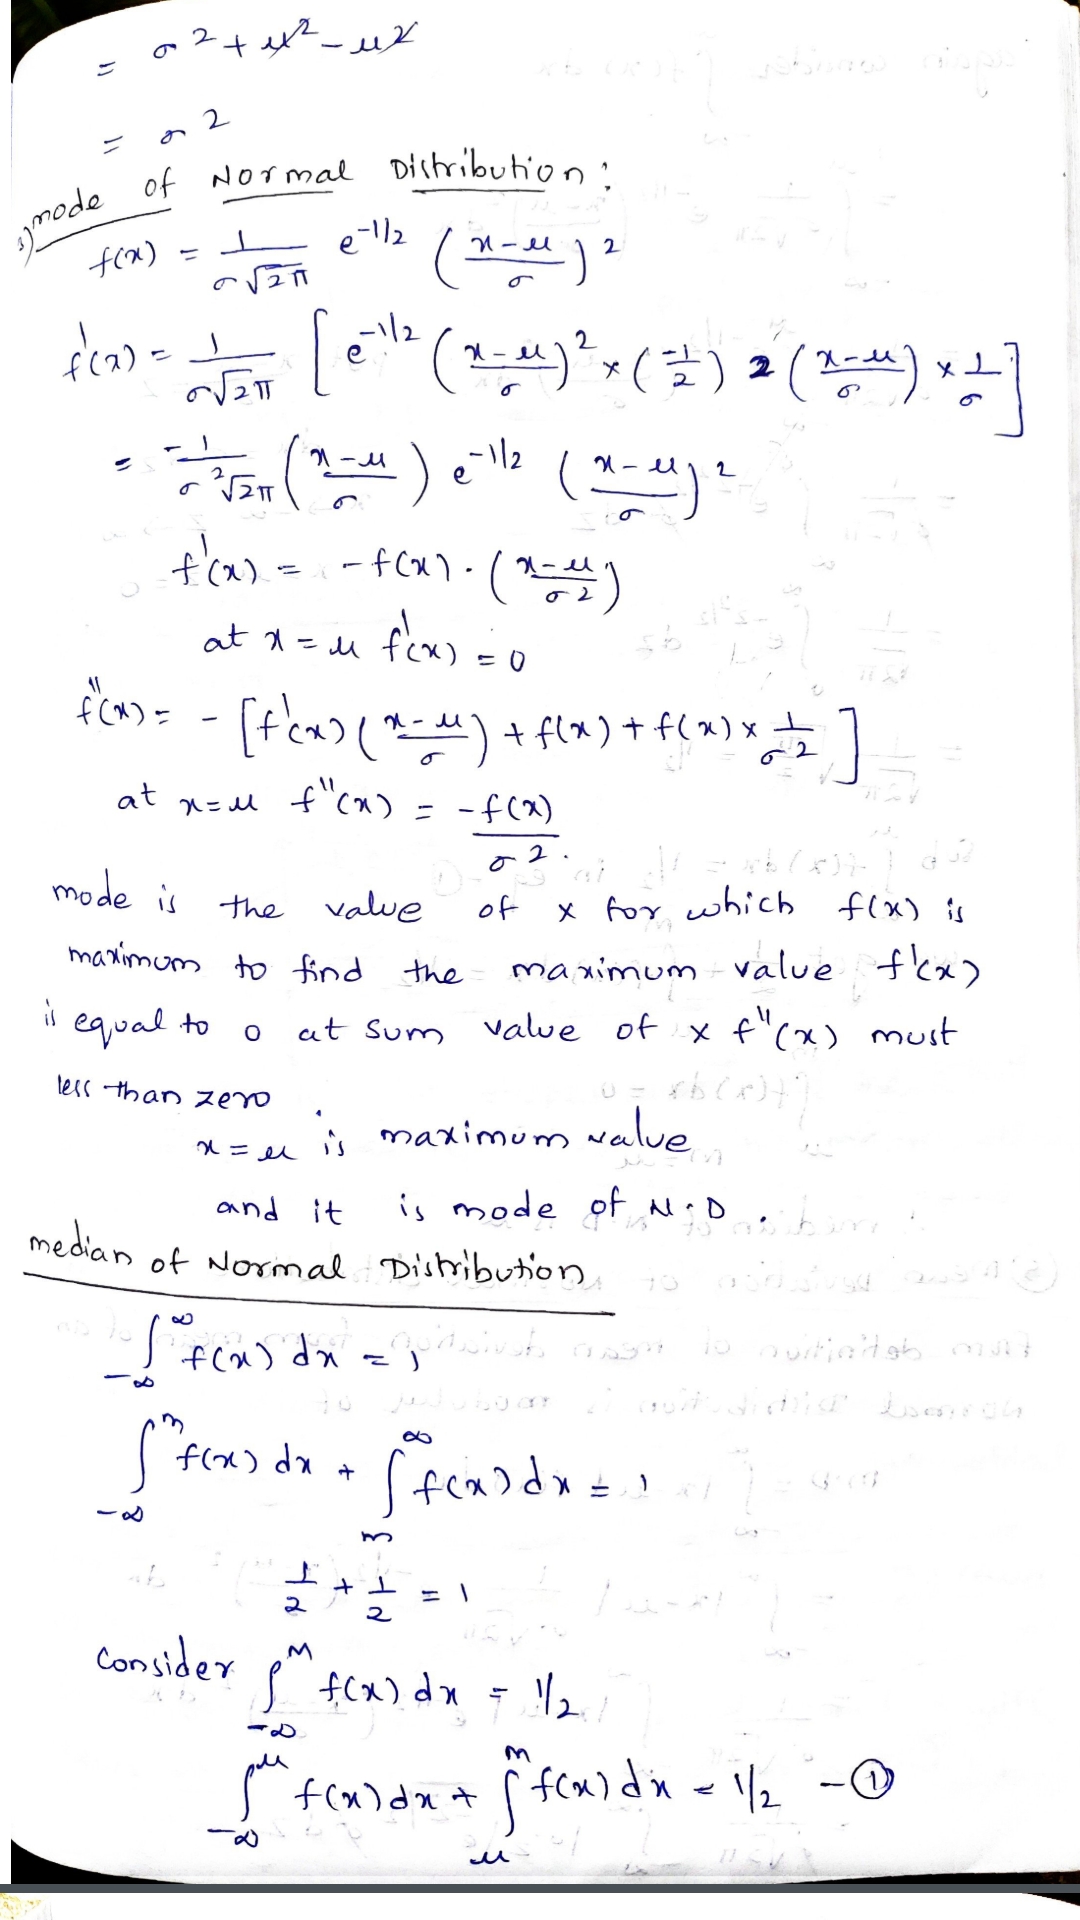 = σ² + μ² - μ²
= σ²
3) mode of Normal Distribution :
f(x) = 1/σ√2π e^-1/2 (x-μ/σ)²
f'(x) = 1/σ√2π [ e^-1/2 (x-μ/σ)² × (-1/2) 2 (x-μ/σ) × 1/σ ]
= -1/σ²√2π (x-μ/σ) e^-1/2 (x-μ/σ)²
f'(x) = -f(x) . (x-μ/σ²)
at x = μ f'(x) = 0
f''(x) = - [ f'(x) (x-μ/σ) + f(x) + f(x) × 1/σ² ]
at x=μ f''(x) = -f(x)/σ² .
mode is the value of x for which f(x) is
maximum to find the maximum value f'(x)
is equal to 0 at sum value of x f''(x) must
less than zero .
x = μ is maximum value
and it is mode of N.D .
median of Normal Distribution
∫_-∞^∞ f(x) dx = 1
∫_-∞^m f(x) dx + ∫_m^∞ f(x) dx = 1
1/2 + 1/2 = 1
Consider ∫_-∞^M f(x) dx = 1/2
∫_-∞^μ f(x) dx + ∫_μ^m f(x) dx = 1/2 - ①